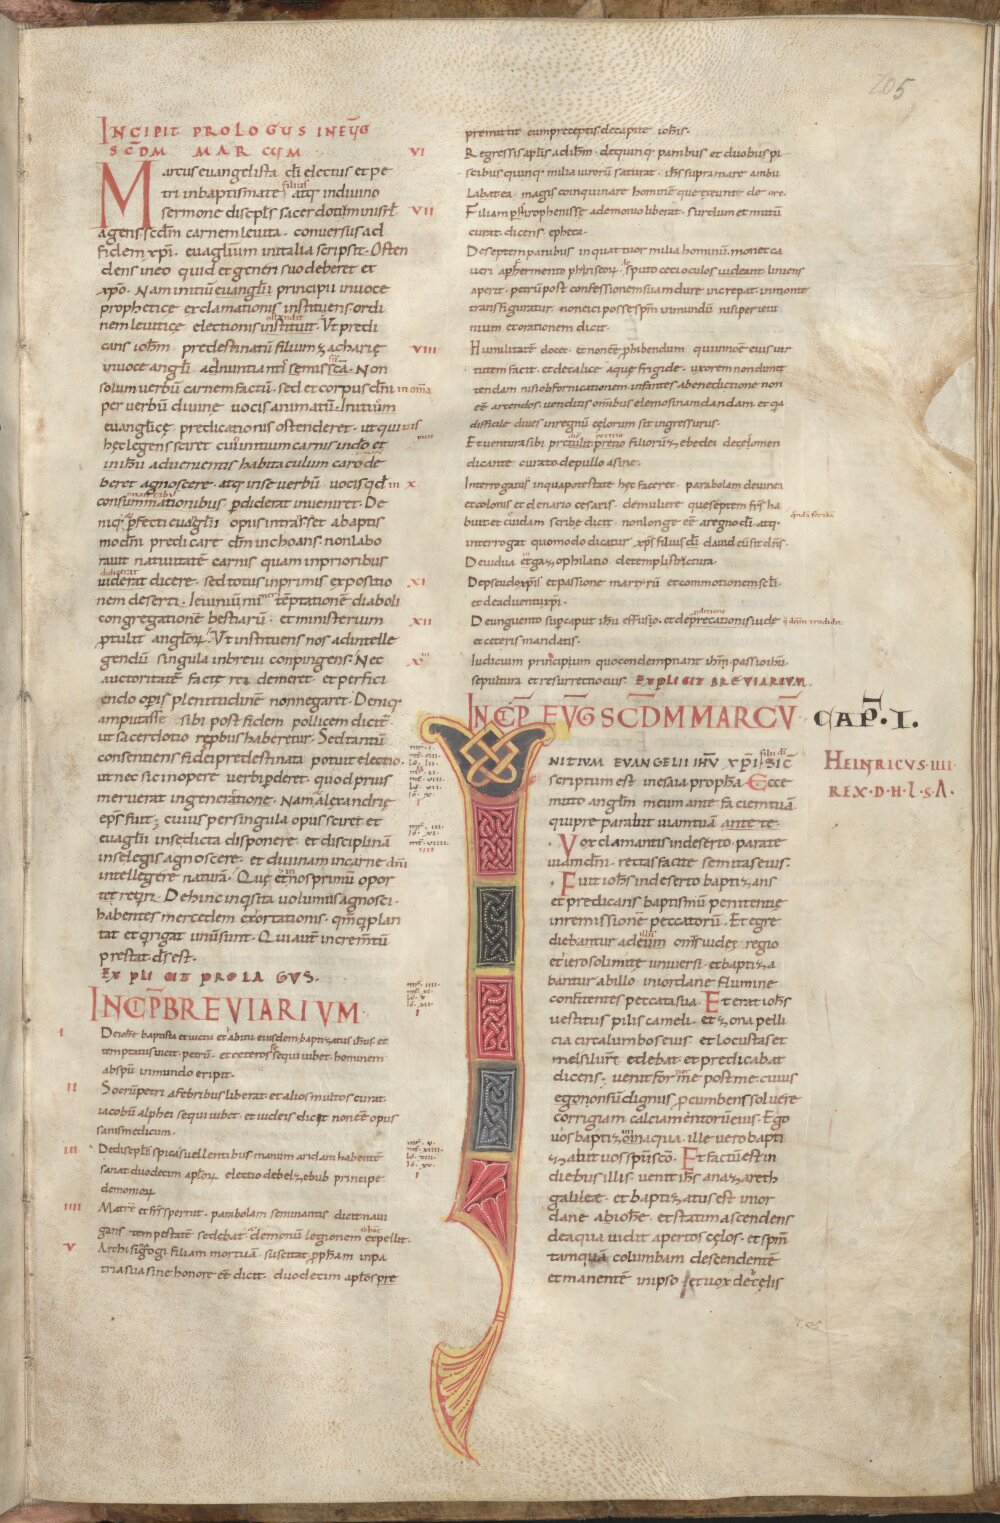 205
INCIPIT PROLOGUS IN EŪG
SC̄DM MARCUM
Marcus euangelista di electus et pe
tri in baptismate filius atq; in diuino
sermone discipls sacerdotiū in isrl
agens. scdm carnem leuita. conuersus ad
fidem xpi. euagliū in italia scripsit. Osten
dens in eo quid et generi suo deberet et
xpo. Nam initiū euanglii principii in uoce
prophetice exclamationis instituens. ordi
nem leuitice electionis instituit. Ut predi
cans iohm predestinatū filium zacharię
in uoce angli adnuntiantis emissū. Non
solum uerbū carnem factū. sed et corpus dni in omia
per uerbū diuine uocis animatū. Initium
euanglice predicationis ostenderet. ut qui
hec legens sciret cui initium carnis in dno et
in ihu aduenientis habitaculum caro de
beret agnoscere. atq; in se uerbū uocis qd in
consummationibus pdiderat inueniret. De
niq; pfecti euaglii opus intrasset a baptis
mo dni predicare dm inchoans. non labo
rauit natiuitatē carnis quam in prioribus
uiderat dicere. sed totus in primis expositio
nem deserti. ieiuniū temptationē diaboli
congregationē bestiarū. et ministerium
ptulit anglor. Ut instituens nos ad intelle
gendū singula in breui conpingens. Nec
auctoritatē facte rei demeret. et perfici
endo opis plenitudinē non negaret. Deniq;
amputasse sibi post fidem pollicem dicitē
ut sacerdotio repbus haberetur. Sed tantū
consentiens fidei predestinata potuit electio.
ut nec sic in opere uerbi perderet. quod prius
meruerat in generatione. Nam alexandrię
eps fuit; cuius per singula opus scire et
euaglii in se dicta disponere. et disciplinā
in se legis agnoscere. et diuinam in carne dni
intellegere naturā. Quę et nos primū opor
tet requiri. Dehinc inqisita uolumus agnosci.
habentes mercedem exortationis. qm qi plan
tat et qi rigat unū sunt. Qui aut incremtū
prestat ds est.
EXPLICIT PROLAGUS.
INCP BREUIARIUM
I De iohe baptista et uictu et habitu eiusdem. baptizatus ihus. et
temptatus uicit. petrū. et ceteros sequi iubet. hominem
ab spu inmundo eripit.
II Socrum petri a febribus liberat et alios multos curat.
iacobū alphei sequi iubet. et iudeis dicit non eē opus
sanis medicum.
III De discipls spicas uellentibus manum aridam habentē
sanat. duodecim aplor electio de belzebub principe
demonior
IIII Matrē et frs spernit. parabolam seminantis dicit naui
gans tempestatē sedebat. demonū legionem expellit.
V Archisigogi filiam mortuā. suscitat. ppham in pa
tria sua sine honore eē dicit. duodecim aplos pre
premittit cum preceptis. decapite iohis.
VI Regressis aplis ad ihm. de quinq; panibus et duobus pi
scibus quinq; milia uirorū saturat. ihs supra mare ambu
labat ea magis coinquinare hominē quę exeunt de ore.
VII Filiam syrophenissę a demonio liberat. surdum et mutū
curat. dicens. epheta.
De septem panibus in quattuor milia hominū. monet ca
ueri a fermento phariseor. sputo ceci oculos uidentiū liniens
aperit. petrū post confessionem suam dure increpat. in monte
transfiguratur. non eici posse spm inmundū nisi per ieiu
nium et orationem dicit.
VIII Humilitatē docet. et non eē phibendum qui in noē eius uir
tutem facit. et de calice aquę frigidę. uxorem non dimit
tendam nisi ob fornicationem. infantes a benedictione non
eē arcendos. uenditis omibus elemosinam dandam. et qa
difficile diues in regnū cęlorum sit ingressurus.
VIIII Et uentura sibi predicit. petitio filiorū zebedei. decę lomen
dicante curato. de pullo asine.
X Interrogatus in qua potestate hęc faceret. parabolam de uinea
et colonis et denario cesaris. de muliere quę septem frs ha
buit et cuidam scribę dicit. non longe eē a regno di. atq;
interrogat quomodo dicatur xps filius di dauid cū sit dns.
De uidua et gazophilatio de templi structura.
XI De pseudoxpis et passione martyrū et commotionem scli.
et de aduentu xpi.
XII De unguento sup caput ihu effusio. et de precationis iudę
et ceteris mandatis.
XIII Iudicium principium quo condempnant ihm. passio ihu.
sepultura et resurrectio eius. EXPLICIT BREUIARIUM.
INCP EŪG SCDM MARCŪ CAP̄. I.
INITIUM EUANGELII IHU XPI filii di SIC
scriptum est in esaia propha. Ecce
mitto anglm meum ante faciem tuā.
qui preparabit uiam tuā ante te.
Vox clamantis in deserto parate
uiam dni. rectas facite semitas eius.
Fuit iohs in deserto baptizans
et predicans baptismū penitentię
in remissionē peccatorū. Et egre
diebantur ad eum oms iudeę regio
et ierosolimitę uniuersi. et baptiza
bantur ab illo in iordane flumine
confitentes peccata sua. Et erat iohs
uestitus pilis cameli. et zona pelli
cia circa lumbos eius. et locustas et
mel siluestrē edebat et predicabat
dicens. uenit fortior me post me. cuius
ego non sū dignus pcumbens soluere
corrigiam calciamentorū eius. Ego
uos baptizaui in aqua. ille uero bapti
zabit uos spu sco. Et factū est in
diebus illis. uenit ihs a nazareth
galileę. et baptizatus est in ior
dane ab iohe. et statim ascendens
de aqua uidit apertos cęlos. et spm
tamquā columbam descendentē
et manentē in ipso. et uox de cęlis
HEINRICVS IIII
REX.D.H.L.S.A.